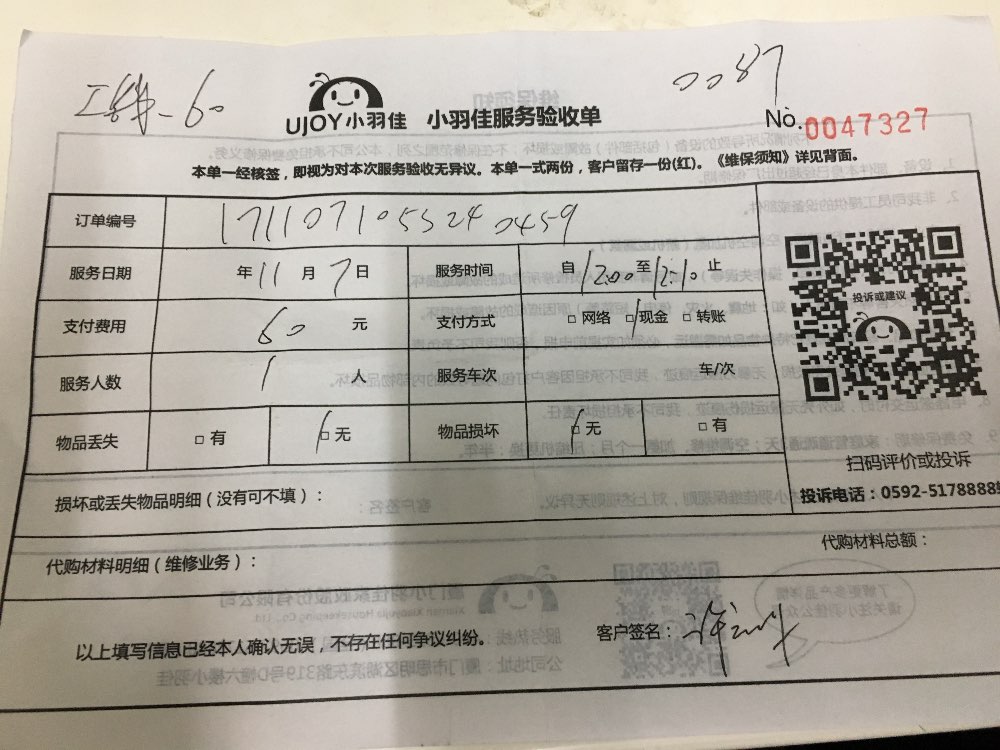 60
0087
UJOY小羽佳 小羽佳服务验收单
No. 0047327
本单一经核签，即视为对本次服务验收无异议。本单一式两份，客户留存一份(红)。《维保须知》详见背面。
订单编号 171107105524 0459
服务日期 年11月7日 服务时间 自12:00至12:10止
支付费用 60 元 支付方式 □网络 □现金 □转账
服务人数 1 人 服务车次 车/次
物品丢失 □有 □无 物品损坏 □无 □有
投诉或建议
扫码评价或投诉
投诉电话：0592-5178888
损坏或丢失物品明细（没有可不填）：
代购材料明细（维修业务）：
代购材料总额：
以上填写信息已经本人确认无误，不存在任何争议纠纷。
客户签名：